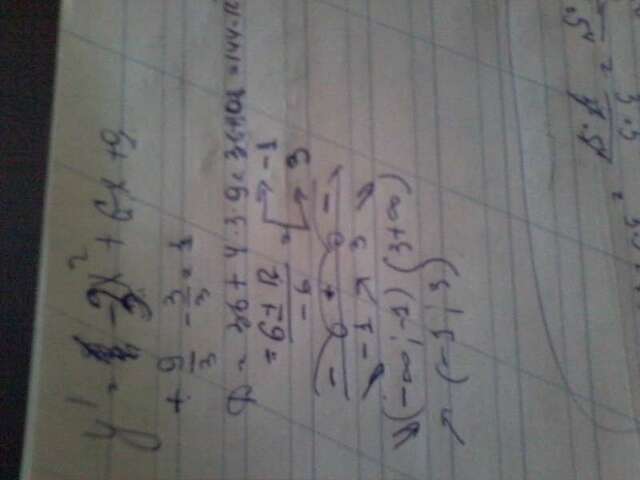 y' = -3x² + 6x + 9
+ 9/3 - 3/3 = 1
D = 36 + 4·3·9 = 36+108 = 144 = 12
= (6 ± 12)/(-6) = → -1
→ 3
- + -
↘ -1 ↗ 3 ↘
↘ (-∞; -1) (3+∞)
↗ (-1; 3)